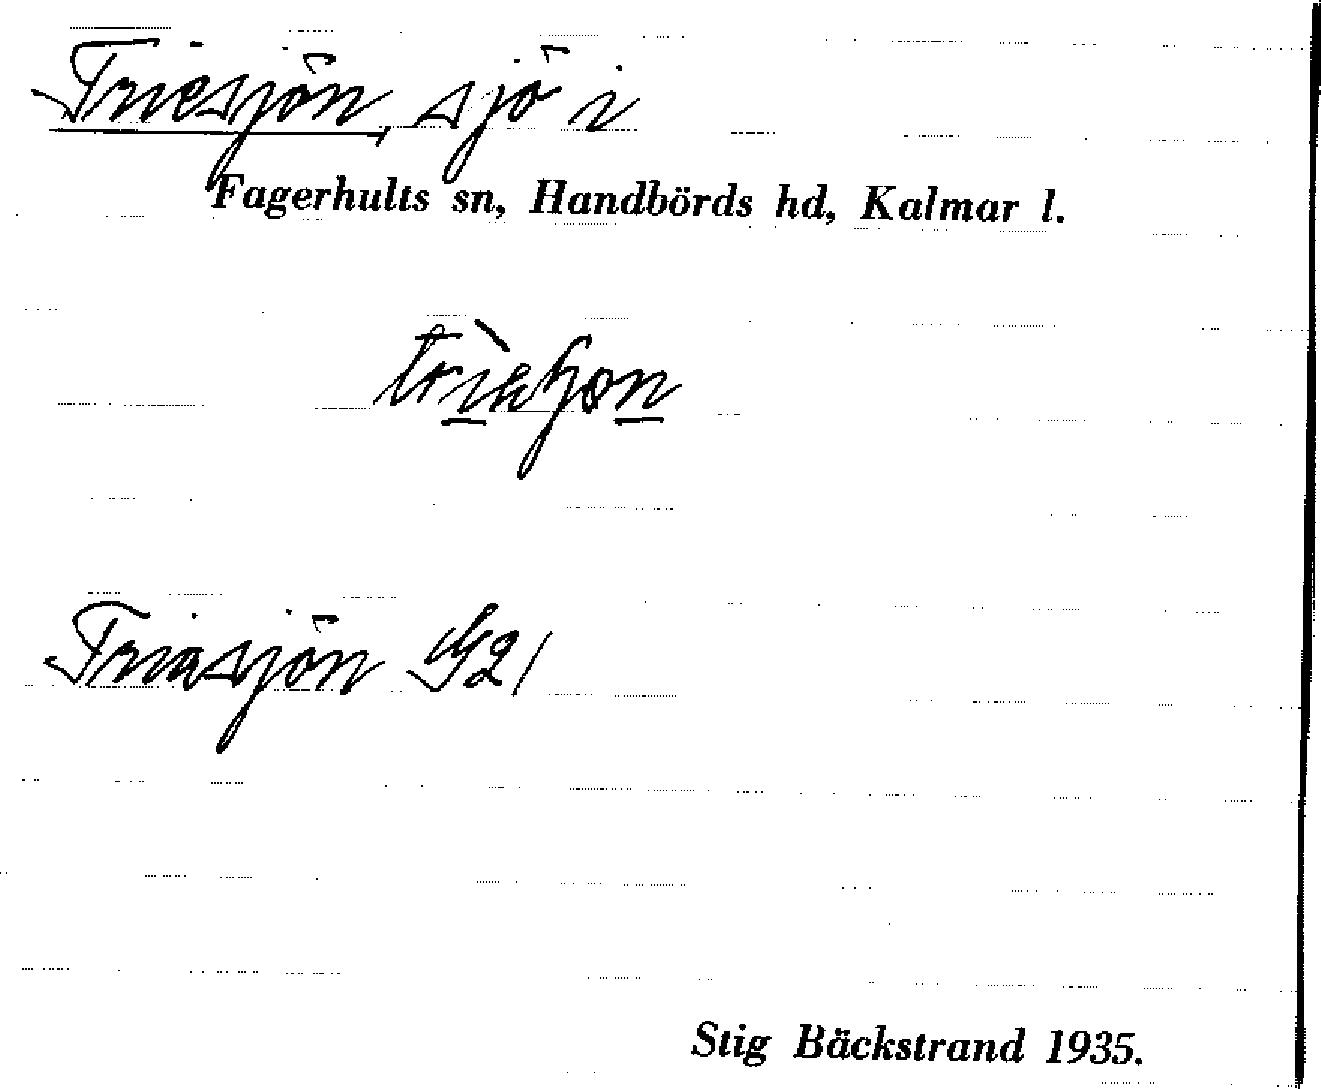 Triesjön, sjö i
Fagerhults sn, Handbörds hd, Kalmar l.
Triasjön
Stig Bäckstrand 1935.